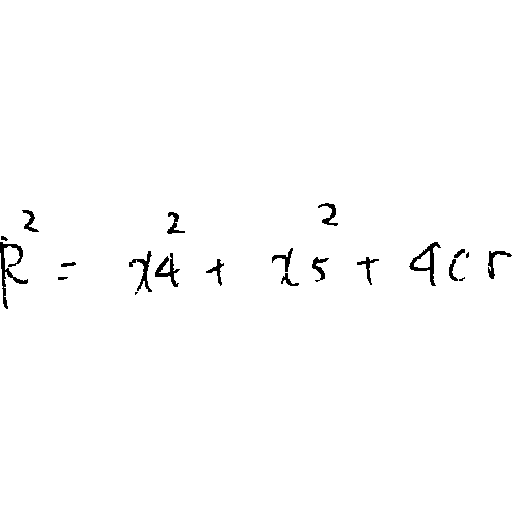 R² = x4² + x5² + 4cr